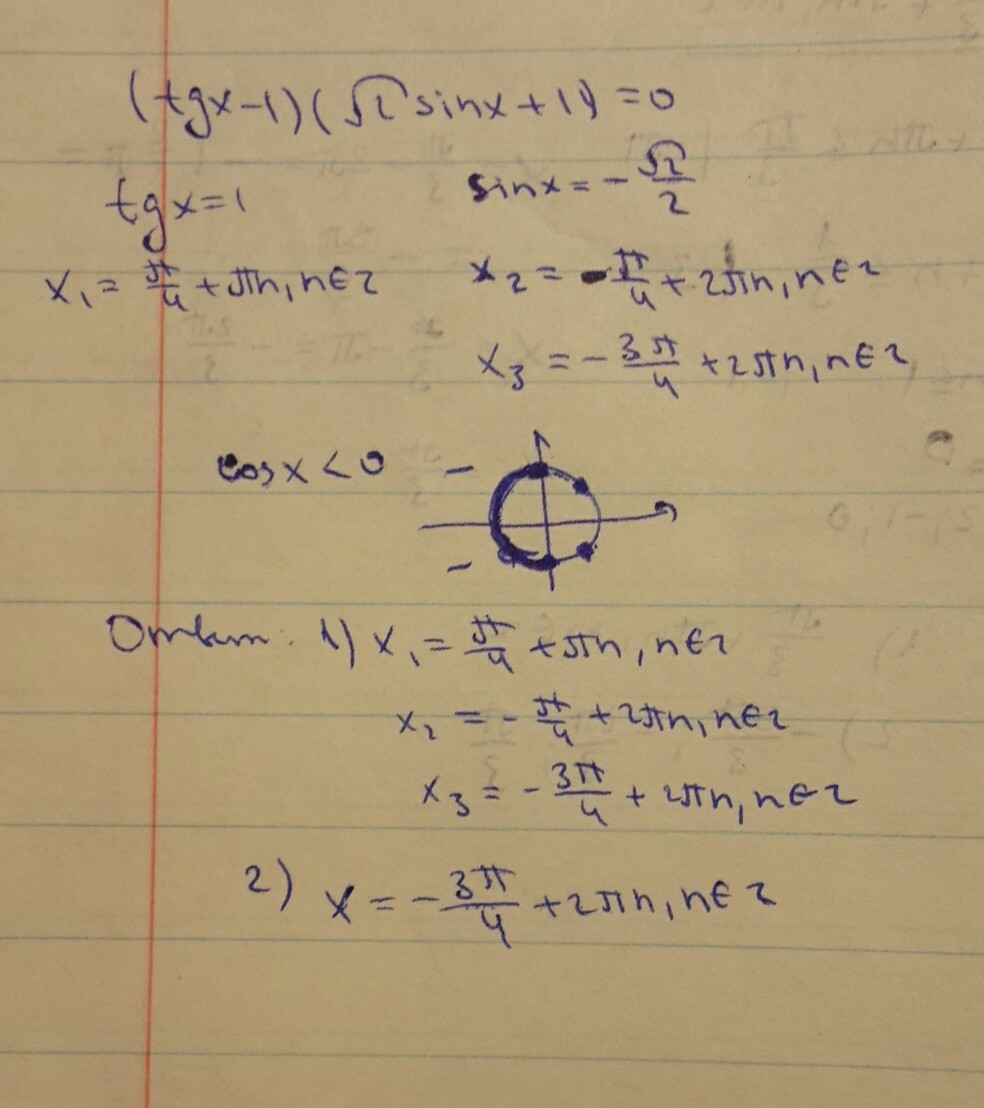 (tgx-1)(√2 sinx+1)=0
tgx=1 sinx=-√2/2
x₁=π/4+πn, n∈z x₂=-π/4+2πn, n∈z
x₃=-3π/4+2πn, n∈z
cosx<0 -
-
Ответ: 1) x₁=π/4+πn, n∈z
x₂=-π/4+2πn, n∈z
x₃=-3π/4+2πn, n∈z
2) x=-3π/4+2πn, n∈z